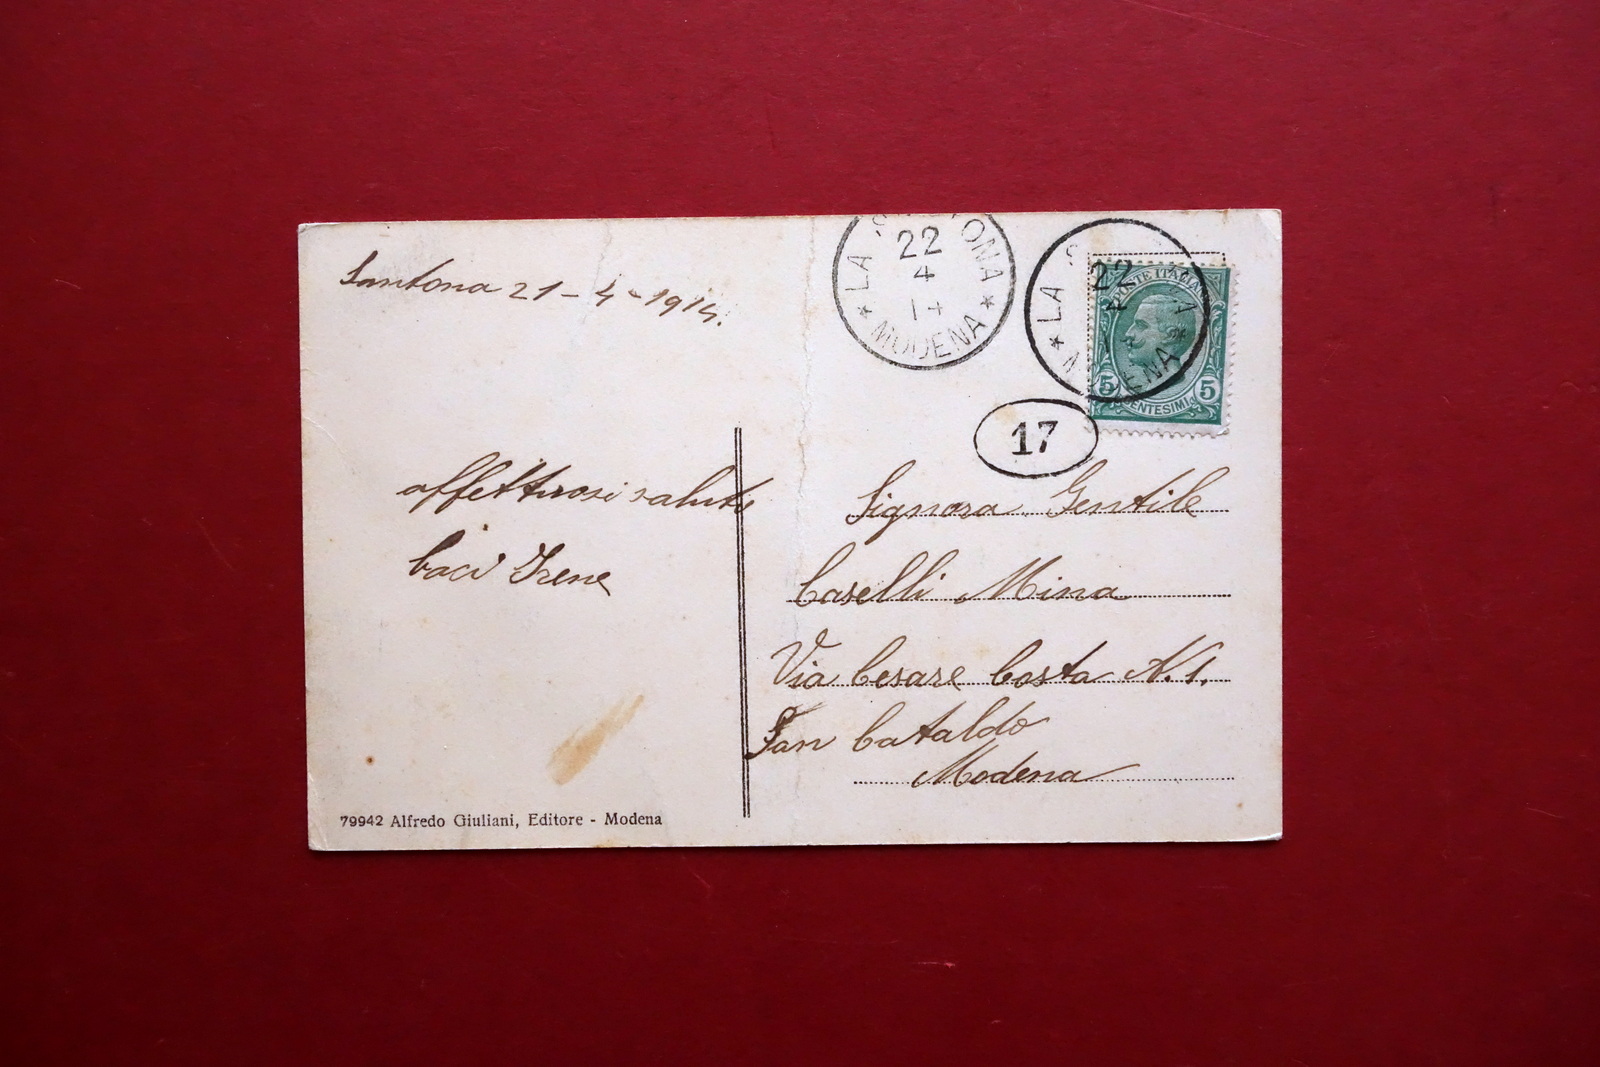 Santona 21-4-1914.
LA S ONA
22
4
14
* MODENA *
LA S A
22
4
* M ENA *
POSTE ITALIANE
5 5
CENTESIMI
17
affettuosi saluti
baci Irene
Signora Gentile
Caselli Mina
Via Cesare Costa N. 1.
San Cataldo
Modena
79942 Alfredo Giuliani, Editore - Modena